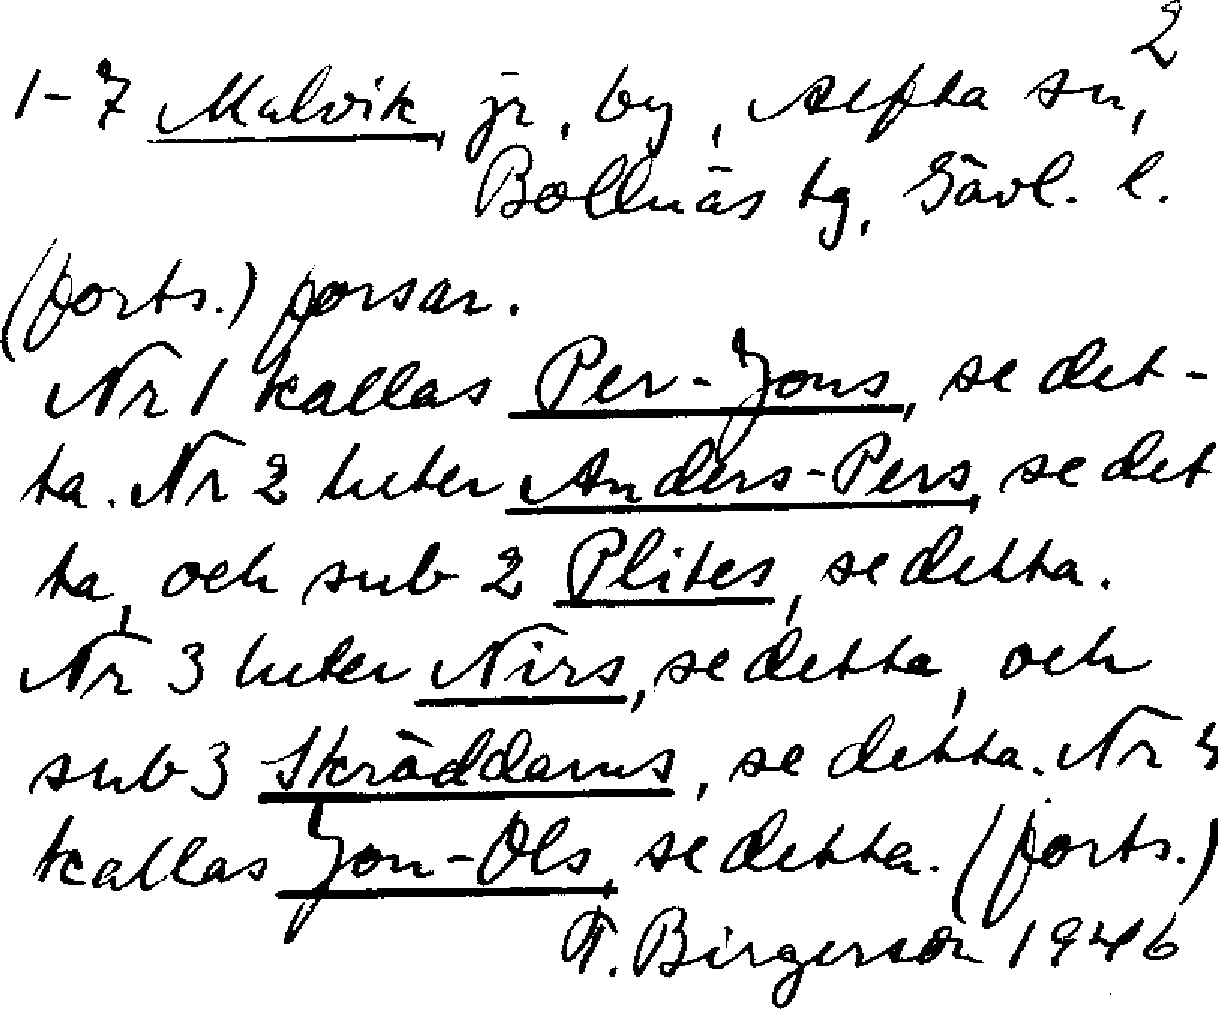 2
1-7 Malvik, jr, by, Alfta sn,
Bollnäs tg, Gävl. l.
(forts.) forsar.
Nr 1 kallas Per-Jons, se det-
ta. Nr 2 heter Anders-Pers, se det
ta, och sub 2 Plites, se detta.
Nr 3 heter Nirs, se detta, och
sub 3 Skräddarns, se detta. Nr 4
kallas Jon-Ols, se detta. (forts.)
F. Birgerson 1946